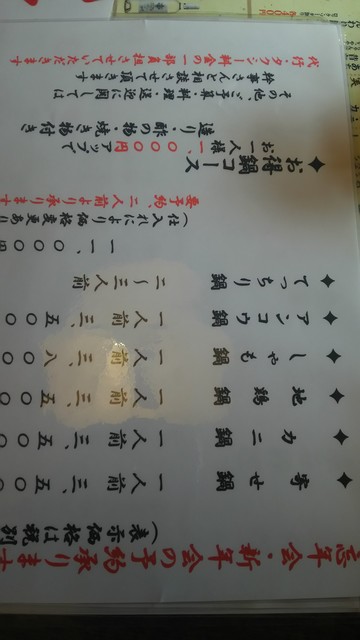 忘年会・新年会の予約承ります
(表示価格は税別
◆寄せ鍋 一人前 三、五〇〇
◆カニ鍋 一人前 三、五〇〇
◆地鶏鍋 一人前 三、五〇〇
◆しゃも鍋 一人前 三、八〇〇
◆アンコウ鍋 一人前 三、五〇〇
◆てっちり鍋 二〜三人前
一一、〇〇〇円
(仕入れにより価格変更あり
要予約、二人前より承ります
◆お得鍋コース
お一人様一、〇〇〇円アップで
造り・酢の物・焼き物付き
その他、ご予算・料理・送迎に関しては
幹事さんと相談させて頂きます
代行・タクシー料金の一部負担させていただきます